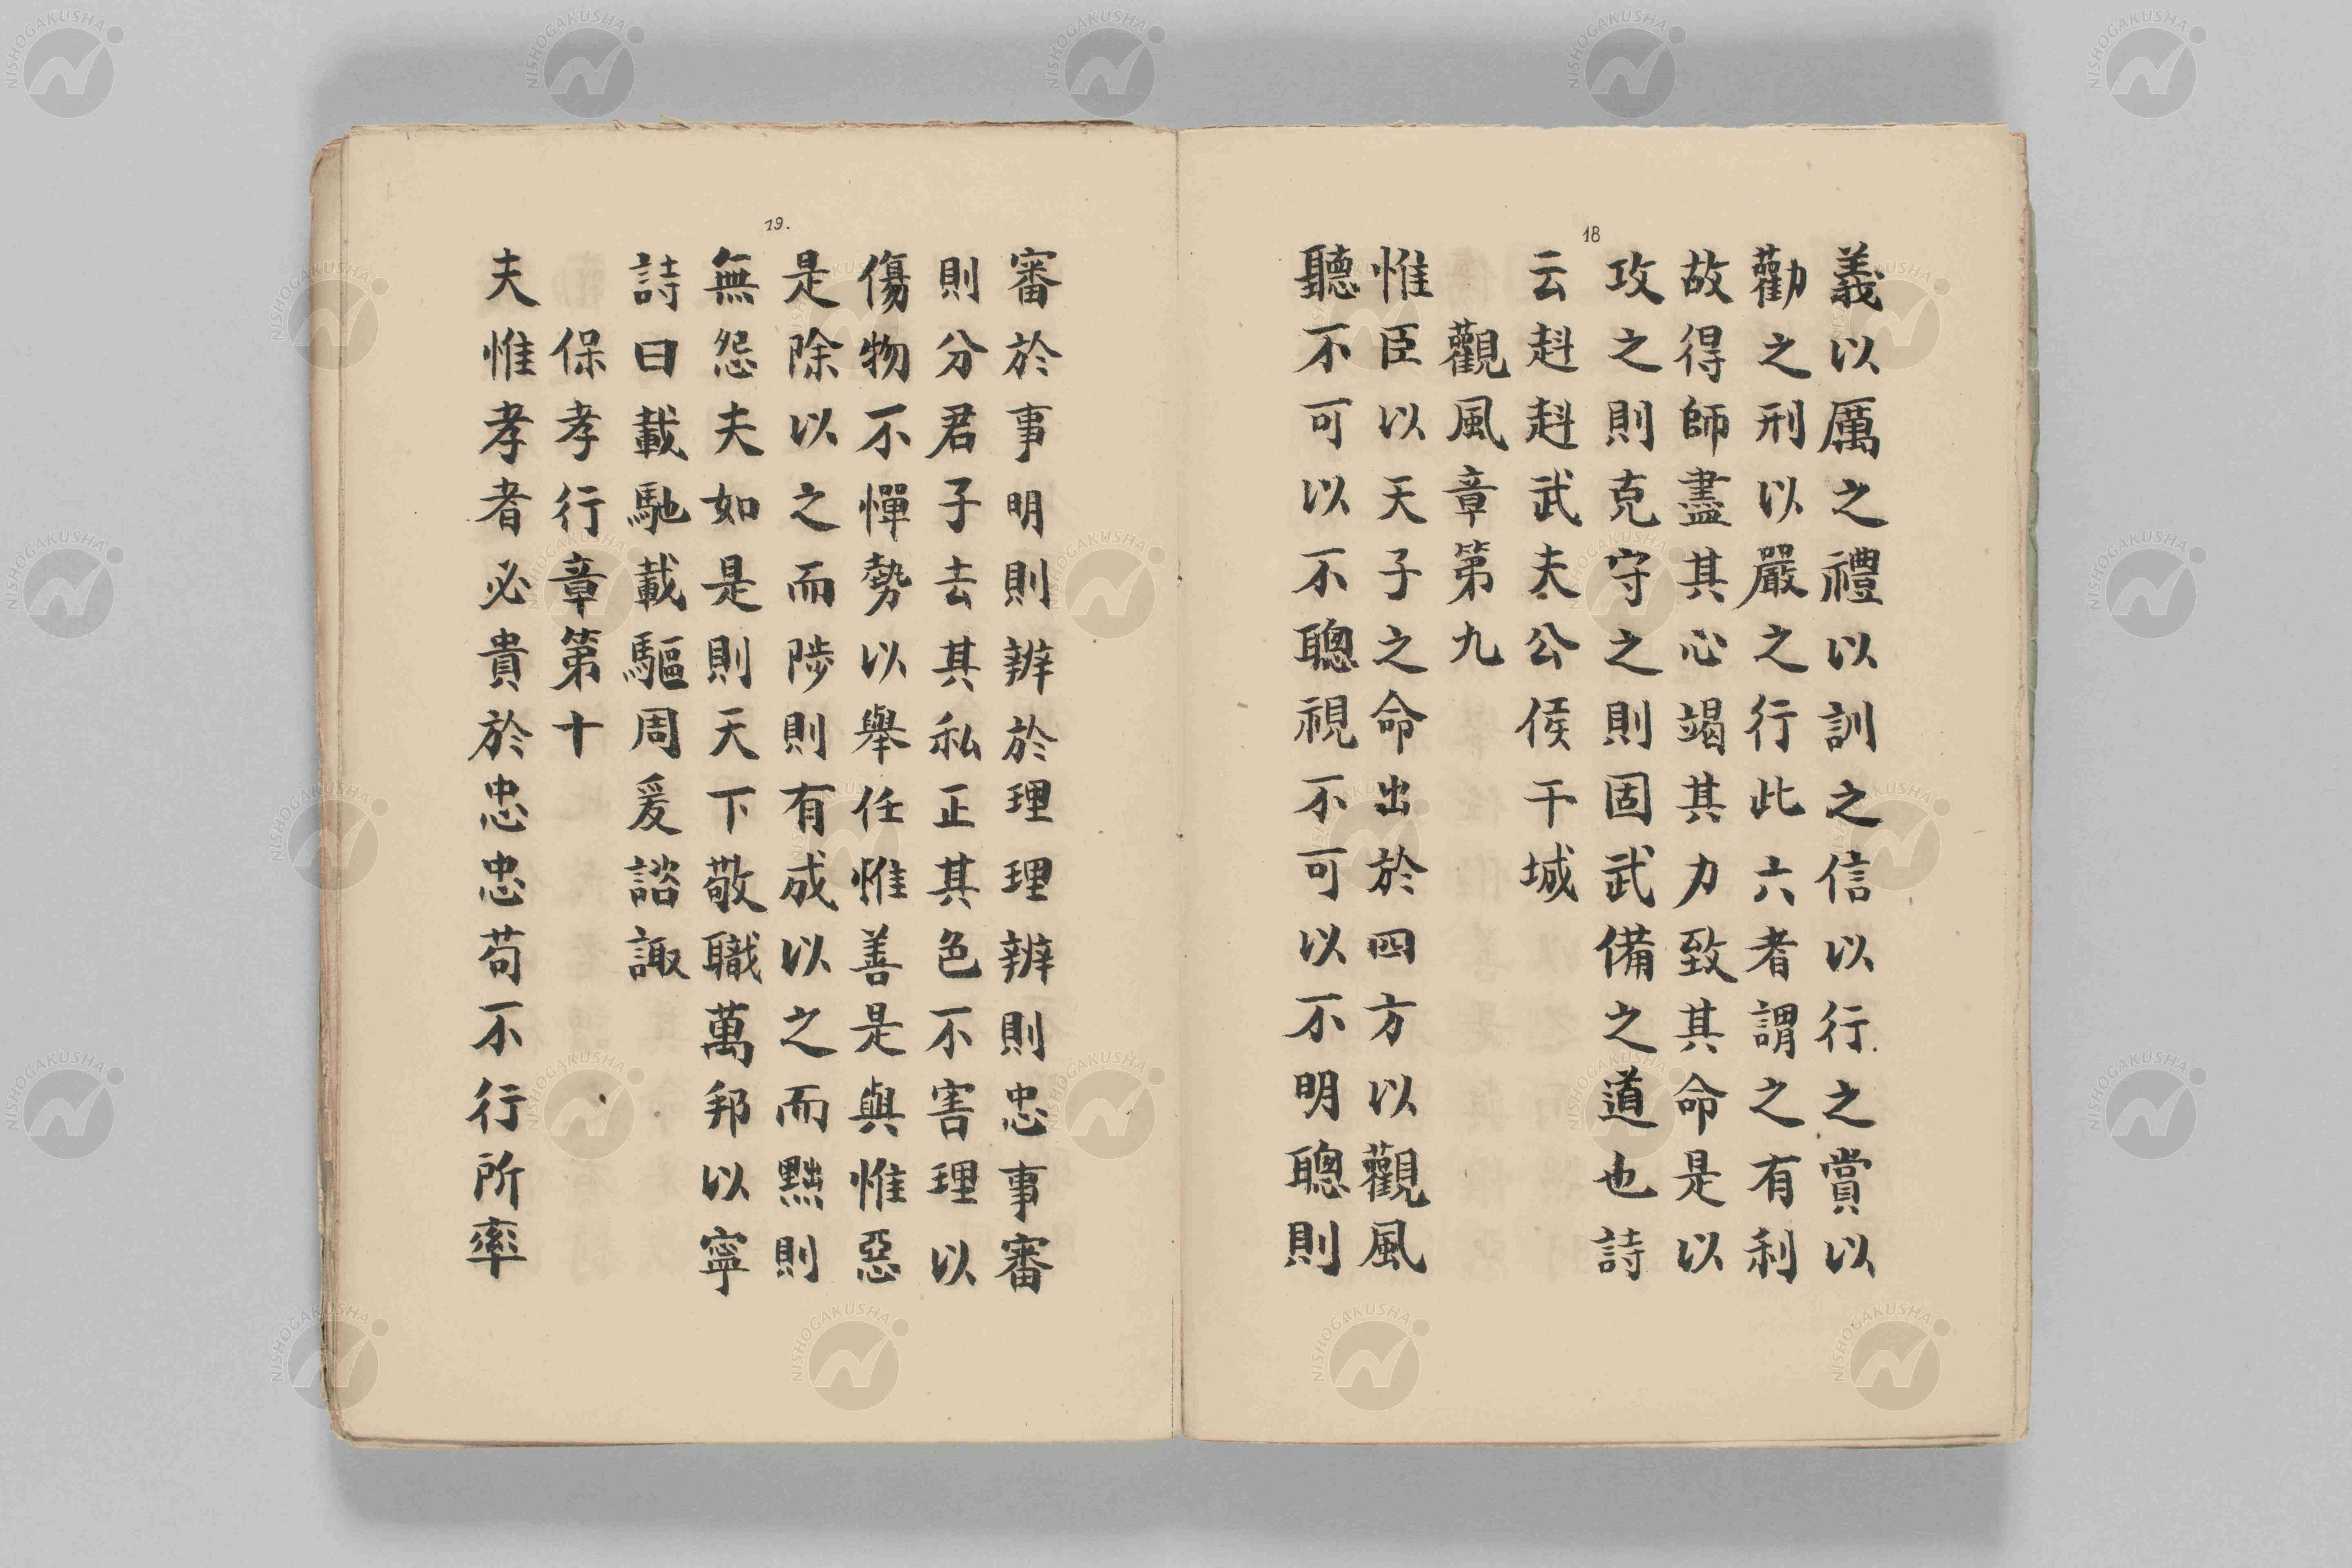 18
義以厲之禮以訓之信以行之賞以
勸之刑以嚴之行此六者謂之有利
故得師盡其心竭其力致其命是以
攻之則克守之則固武備之道也詩
云赳赳武夫公侯干城
觀風章第九
惟臣以天子之命出於四方以觀風
聽不可以不聰視不可以不明聰則
19.
審於事明則辨於理理辨則忠事審
則分君子去其私正其色不害理以
傷物不憚勢以舉任惟善是與惟惡
是除以之而陟則有成以之而黜則
無怨夫如是則天下敬職萬邦以寧
詩曰載馳載驅周爰諮諏
保孝行章第十
夫惟孝者必貴於忠忠苟不行所率
NISHOGAKUSHA